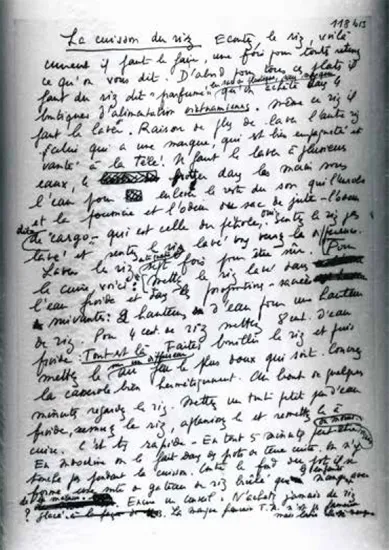 118413
La cuisson du riz Ecoutez le riz, voilà
comment il faut le faire, une fois pour toute retenez
ce qu'on vous dit. D'abord pour tous ce plats il
faut du riz dit "parfumé" qu'on achète day les
boutiques d'alimentation vietnamiennes. même ce riz il
faut le laver. Raison de plus de laver l'autre riz
celui qui a une marque, qui est bien empaqueté et
vanté à la Télé! Il faut le laver à plusieurs
eaux, le frotter day les mains sous
l'eau pour enlever le reste du son qui
et la poussière et l'odeur du sac de jute - l'odeur
de cargo - qui est celle du pétrole, sentez le riz pas
lavé et sentez le riz lavé vous verrez la différence.
Laver le riz sept fois pour être sûr. Pour
la cuire, voici: Mettez le riz lavé day
l'eau froide et day les proportions
suivantes: 2 hauteurs d'eau pour un hauteur
de riz. Pour 4 cent. de riz mettez 8 cent. d'eau
froide. Tout est là. Faites bouillir le riz et puis
mettez le sur un diffuseur au feu le plus doux qui soit. Couvrez
la casserole bien hermétiquement. Au bout de quelques
minutes regardez le riz. Mettez un tout petit peu d'eau
froide, remuez le riz, aplanissez le et remettez le à
cuire. C'est très rapide - En tout 5 minutes peut-être
En Indochine on le fait day des pots de terre cuite, on n'y
touche pas pendant la cuisson. Contre le fond des pots il se
forme une sorte de gateau de riz brûlé que mangent
Encore un conseil: N'achetez jamais de riz
glacé,